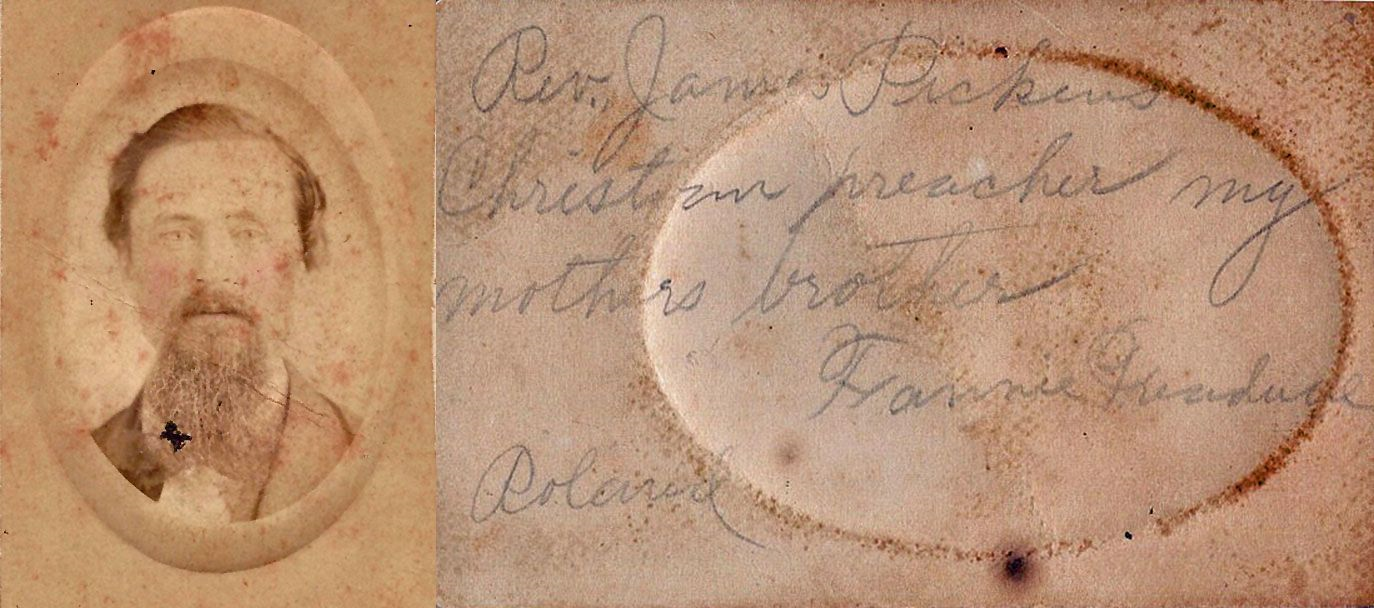 Rev. James Pickens
Christian preacher my
mothers brother
Fannie
Roland